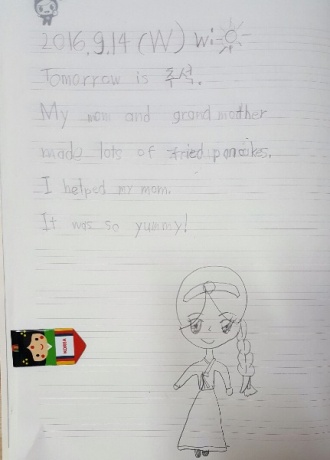 2016.9.14 (W) wi
Tomorrow is 추석.
My mom and grand mother
made lots of fried pancakes.
I helped my mom.
It was so yummy!
KOREA